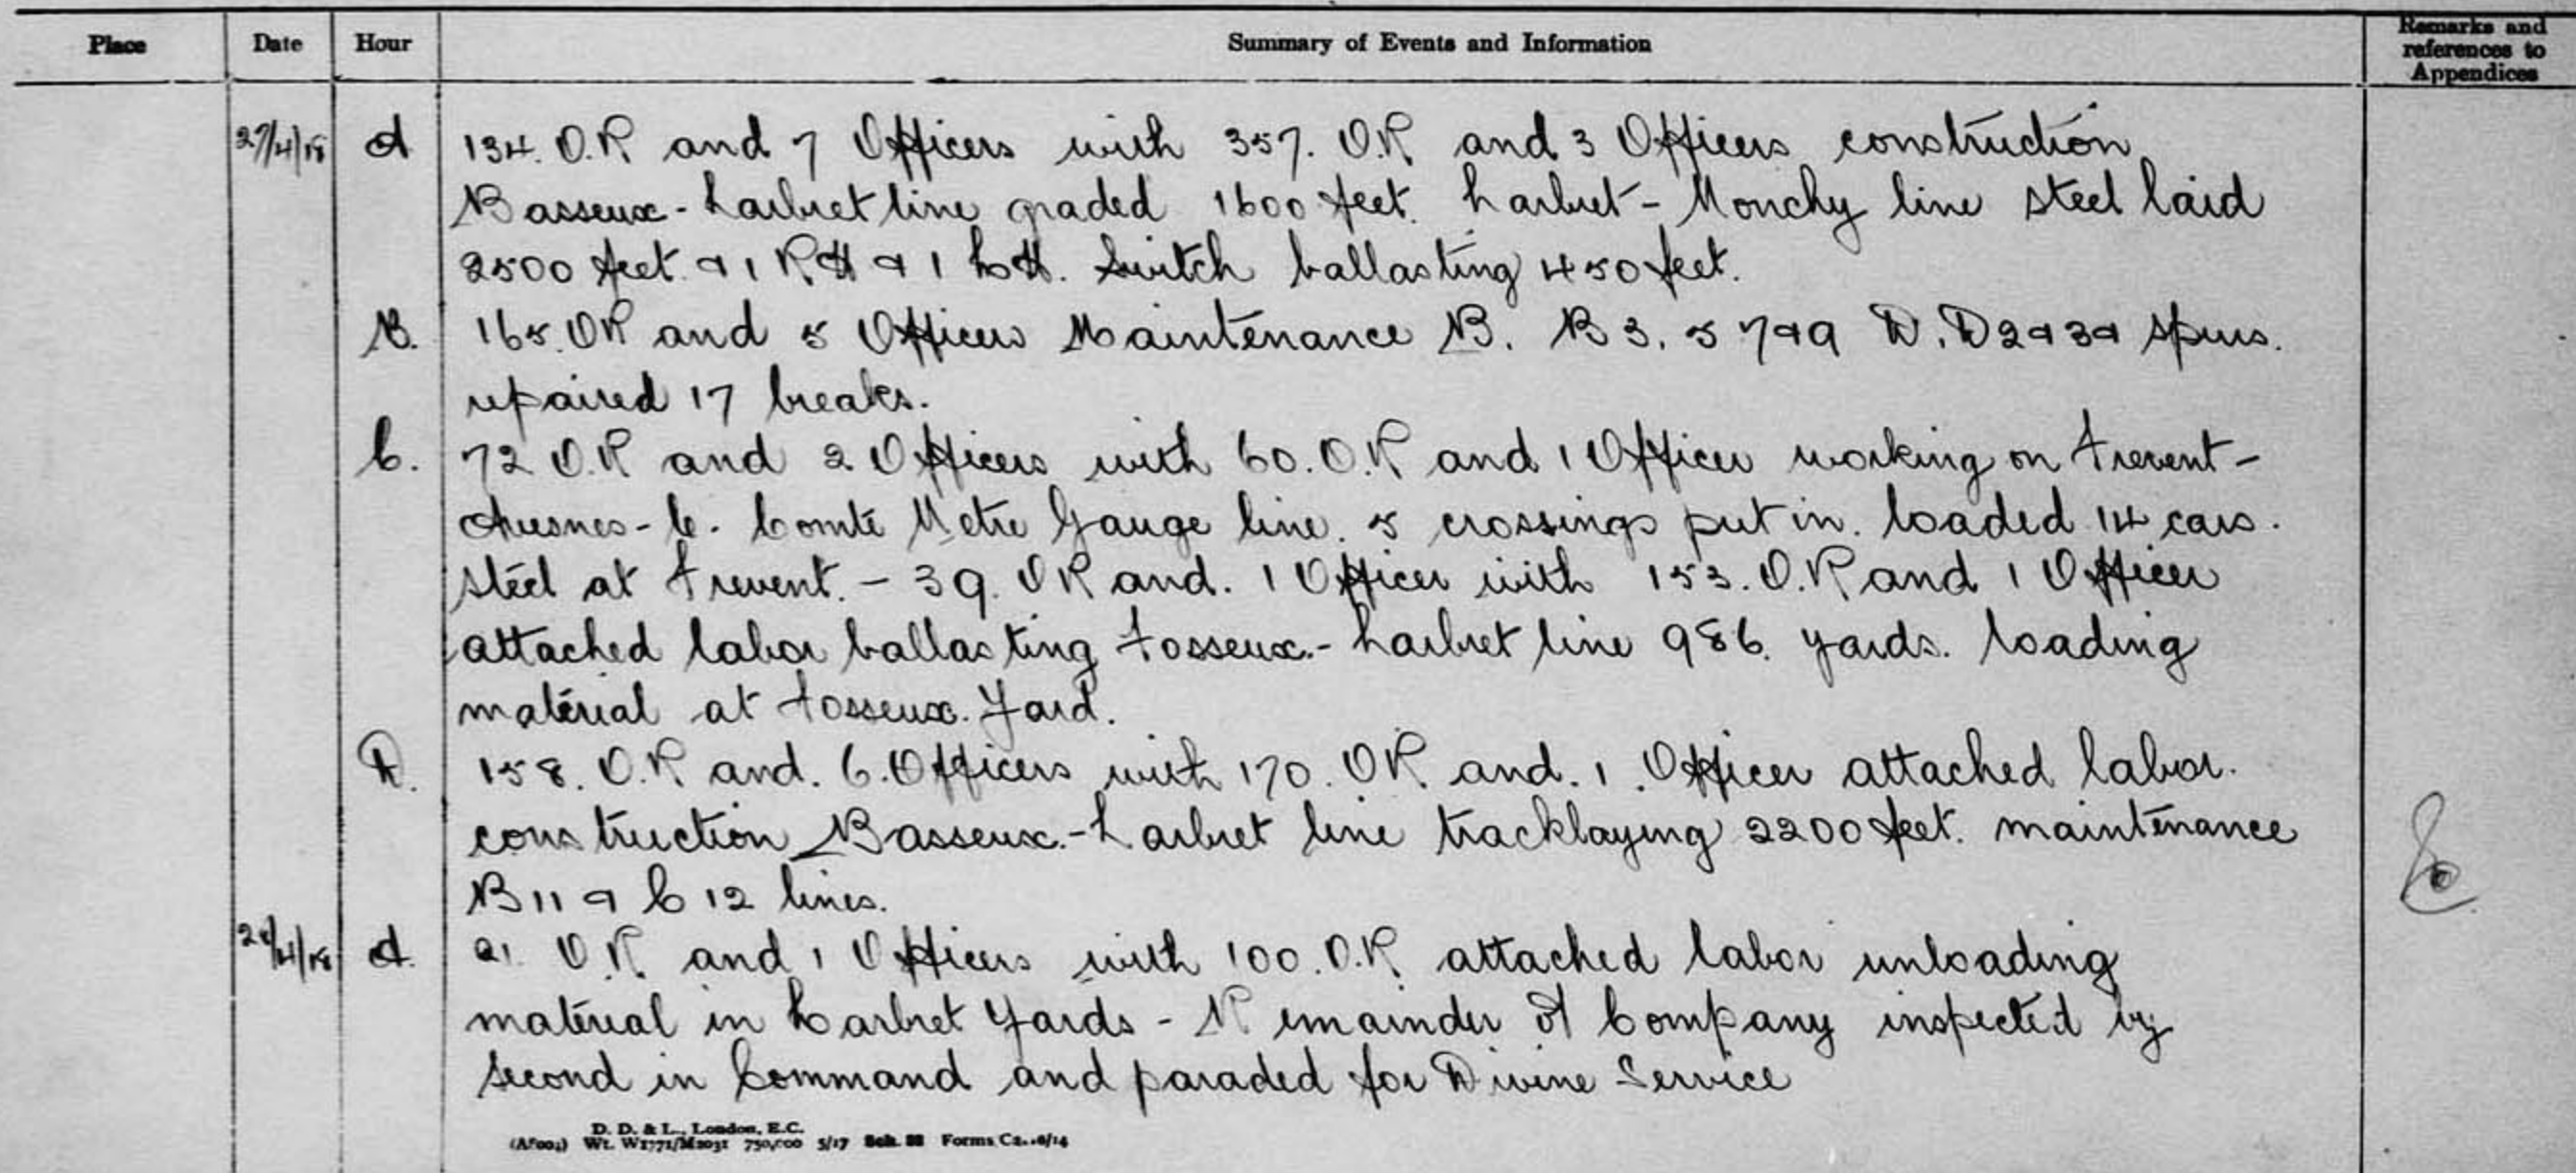 Place Date Hour Summary of Events and Information Remarks and references to Appendices
27/4/18 A 134. O.R and 7 Officers with 357. O.R and 3 Officers construction
Basseux - Larbret line graded 1600 feet. Larbret - Monchy line steel laid
2500 feet & 1 RH & 1 LH. Switch ballasting 450 feet.
B. 165. OR and 5 Officers Maintenance B. B3. 5 7 & 9 D. D2 & 3 & spurs.
repaired 17 breaks.
C. 72 O.R and 2 Officers with 60. O.R and 1 Officer working on Frevent -
Avesnes - le - Comté Metre Gauge line. 5 crossings put in. loaded 14 cars.
steel at Frevent. - 39. OR and. 1 Officer with 153. O.R and 1 Officer
attached labor ballasting Fosseux. - Larbret line 986. yards. loading
material at Fosseux. Yard.
D. 158. O.R and. 6. Officers with 170. OR and. 1. Officer attached labor.
construction Basseux. - Larbret line tracklaying 2200 feet. maintenance
B11 & C12 lines.
28/4/18 A. 21. O.R and 1 Officers with 100. O.R attached labor unloading
material in Larbret Yards - Remainder of Company inspected by
second in Command and paraded for Divine Service
D. D. & L., London, E.C.
(A7001) Wt. W1771/M2031 750,000 5/17 Sch. 52 Forms C2../14